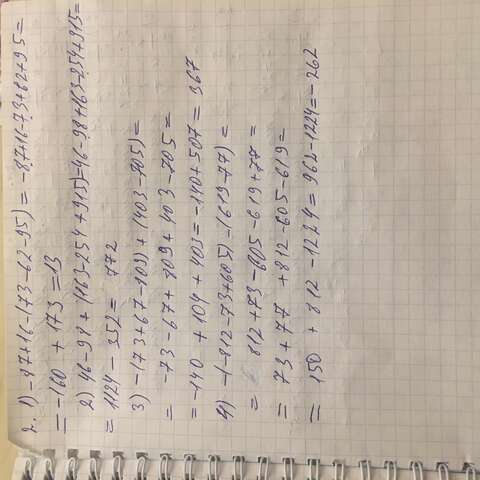 2. 1) -87+16-(73-62-95) = -87+16-73+62+95=
= -160 + 173 = 13
2) 46-98 + (163-254+915)=46-98+163-254+915=
= 1124 - 352 = 772
3) -(73+67-809) + (403-705)=
= -73-67+809+403-705=
= -140 + 104 + 403= -140+507 = 367
4) -(-812-73+605)-(619-77) =
= 812+73-605-619+77 =
= 73+77 +812-605-619=
= 150 + 812 -1224= 962-1224=-262